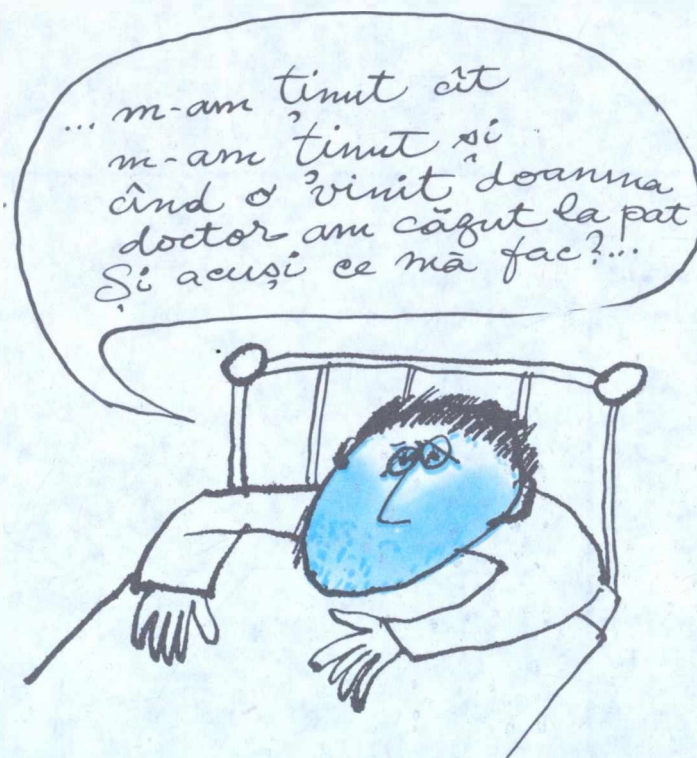 ... m-am ținut cît
m-am ținut si
cînd o vinit doamna
doctor am căzut la pat
Și acuși ce mă fac?...